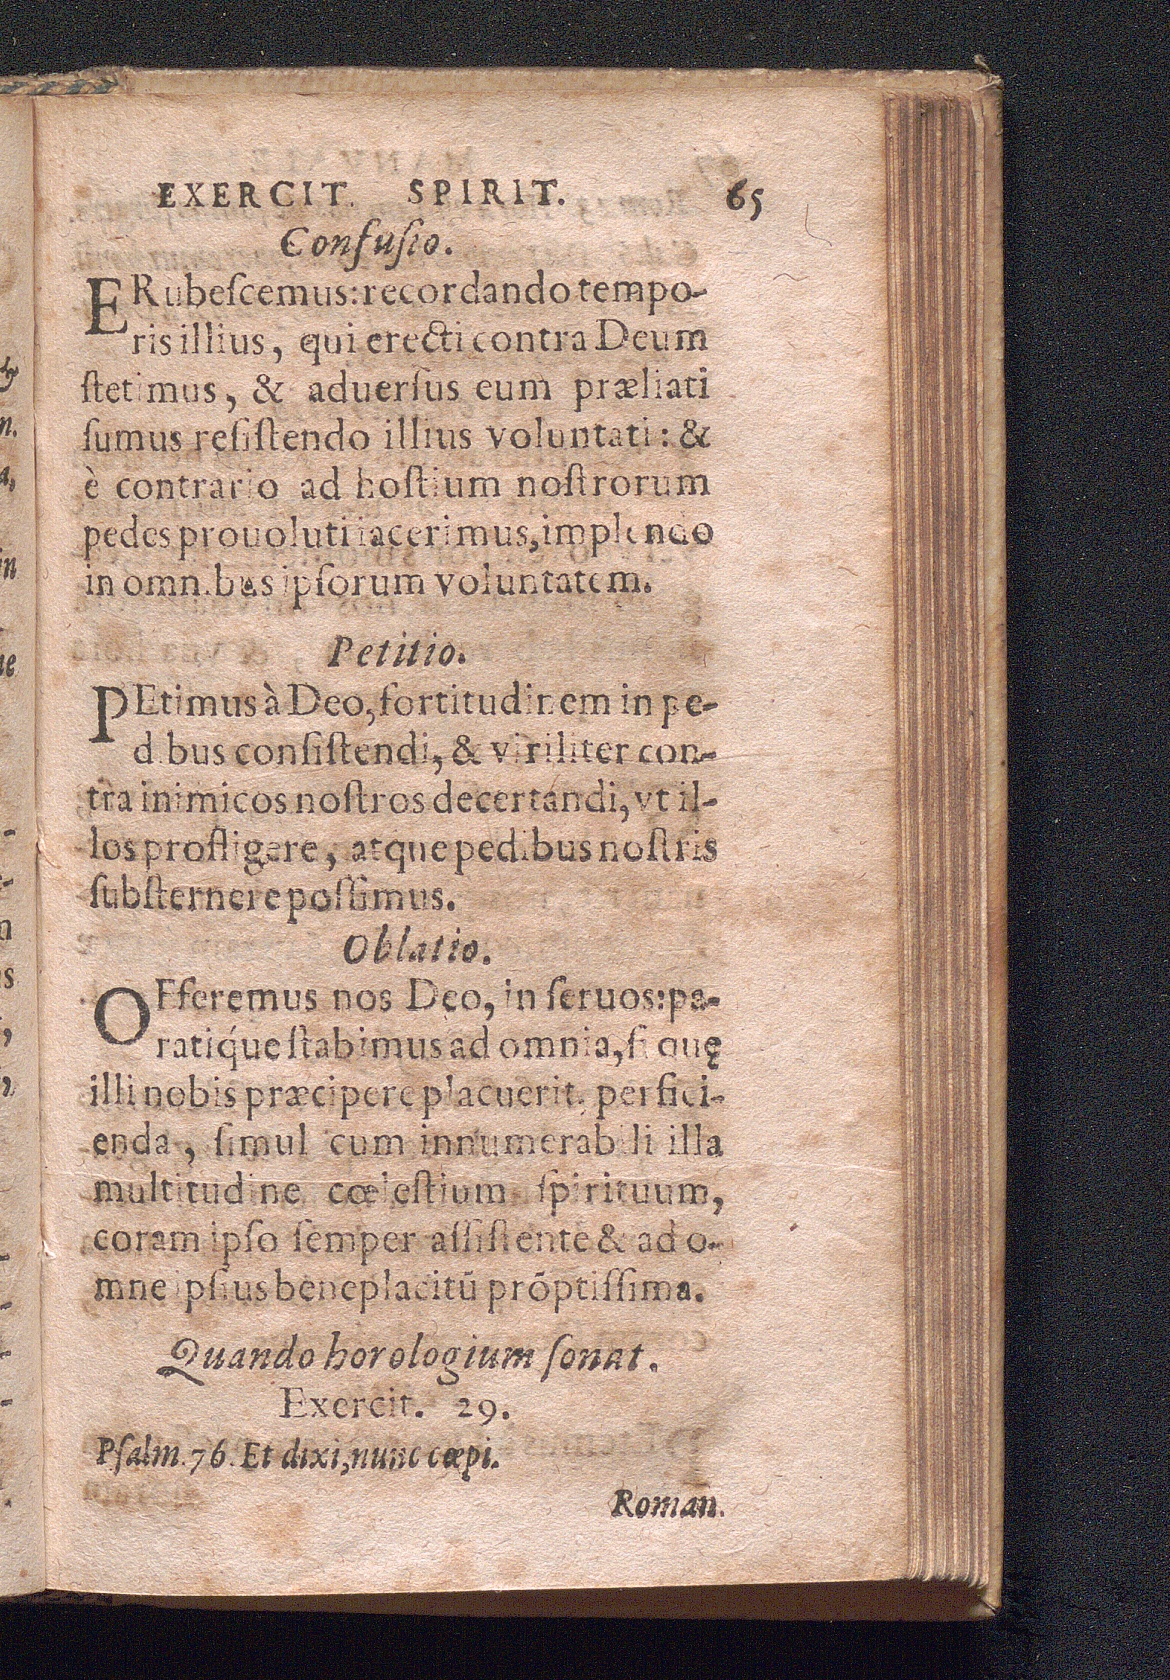 EXERCIT. SPIRIT. 65
Confuſio.
ERubeſcemus: recordando tempo-
ris illius, qui erecti contra Deum
ſtetimus, & aduerſus eum præliati
ſumus reſiſtendo illius voluntati: &
è contrario ad hoſtium noſtrorum
pedes prouoluti iacerimus, implendo
in omnibus ipſorum voluntatem.
Petitio.
PEtimus à Deo, fortitudinem in pe-
dibus conſiſtendi, & viriliter con-
tra inimicos noſtros decertandi, vt il-
los profligere, atque pedibus noſtris
ſubſternere poſſimus.
Oblatio.
OFferemus nos Deo, in ſeruos: pa-
ratiq́ue ſtabimus ad omnia, ſi quę
illi nobis præcipere placuerit, perfici-
enda, ſimul cum innumerabili illa
multitudine cœleſtium ſpirituum,
coram ipſo ſemper aſſiſtente & ad o-
mne ipſius beneplacitū prōptiſſima.
Quando horologium ſonat.
Exercit. 29.
Pſalm. 76. Et dixi, nunc cœpi.
Roman.